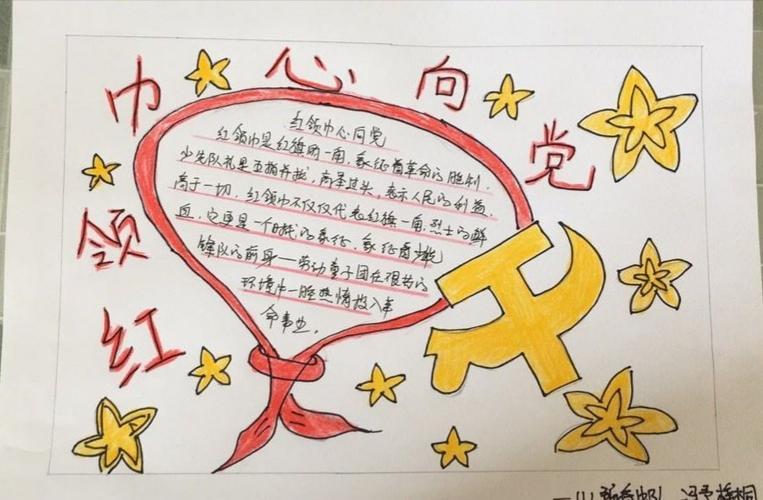 红领巾心向党
红领巾心向党
红领巾是红旗的一角，象征着革命的胜利．
少先队礼是五指并拢，高举过头，表示人民的利益
高于一切．红领巾不仅仅代表红旗一角，烈士的鲜
血，它更是一个的象征，象征着少
锋队的前身——劳动童子团在艰苦的
环境中一腔热情投入革
命事业．